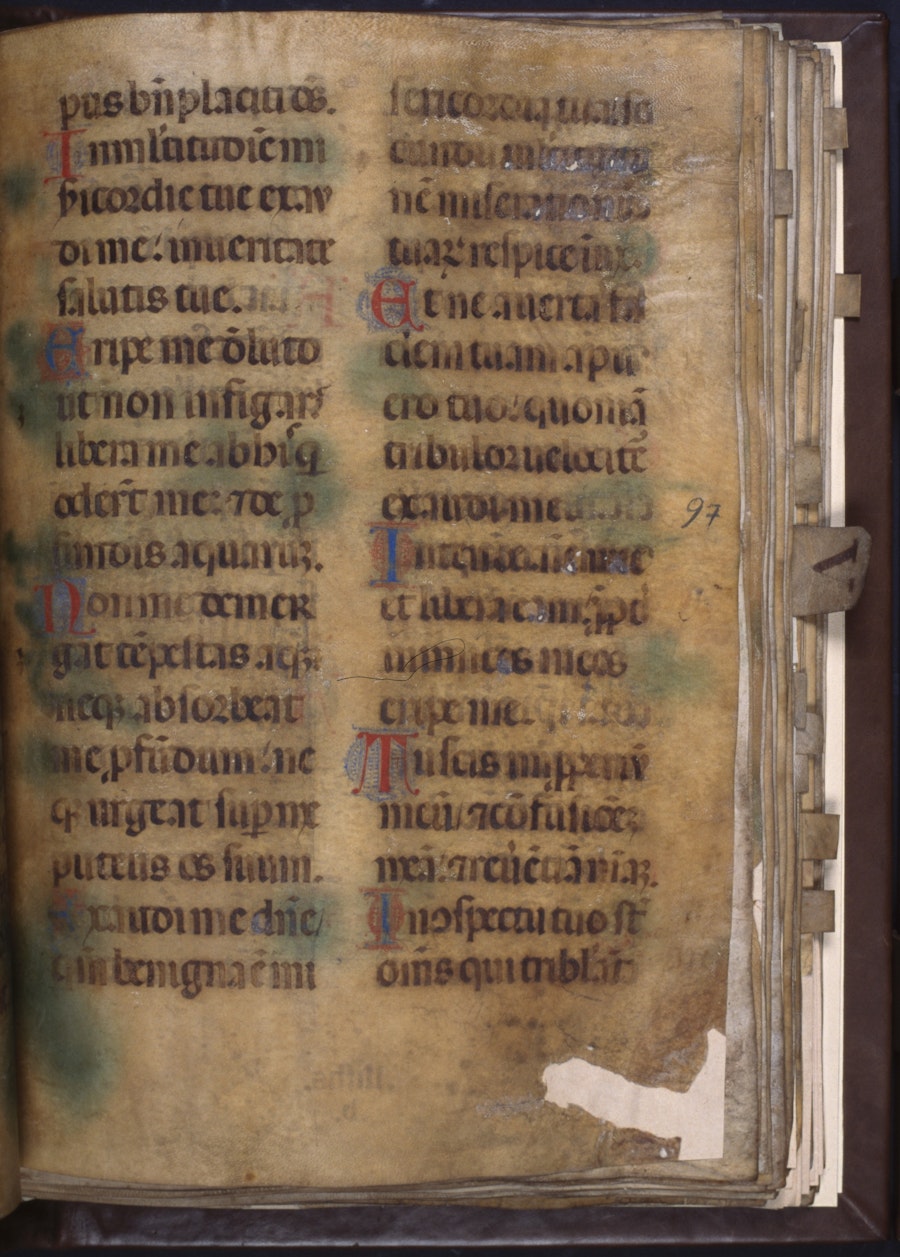 pus bn̄placiti ds̄.
In ml̄titudiē mi
sˀicordie tue exau
di me: in ueritate
salutis tue.
Eripe me d̄ luto
ut non infigar:
libera me ab hiis q
oderūt me: ⁊ de ꝓ
fundis aquarūꝫ.
Non me demer
gat tēpestas aqꝫ:
neqꝫ absorbeat
me ꝓfūdum: ne
qꝫ urgeat suꝑ me
puteus os suum.
Exaudi me dn̄e/
qm̄ benigna ē mi
sericordia tua: se
cundū multitudi
nē miserationū
tuaꝝ respice in me.
Et ne auertas fa
ciem tuam a pu
ero tuo: quoniā
tribulor uelocitē
exaudi me
Intende aīe mee
et libera eam: ꝓpt̄
inimicos meos
eripe me
Tu scis imꝓperiū
meū/ ⁊ cōfusionēꝫ
meā: ⁊ reuerētiā meāꝫ.
In ɔspectu tuo st̄
om̄s qui tribl̄āt
97
V